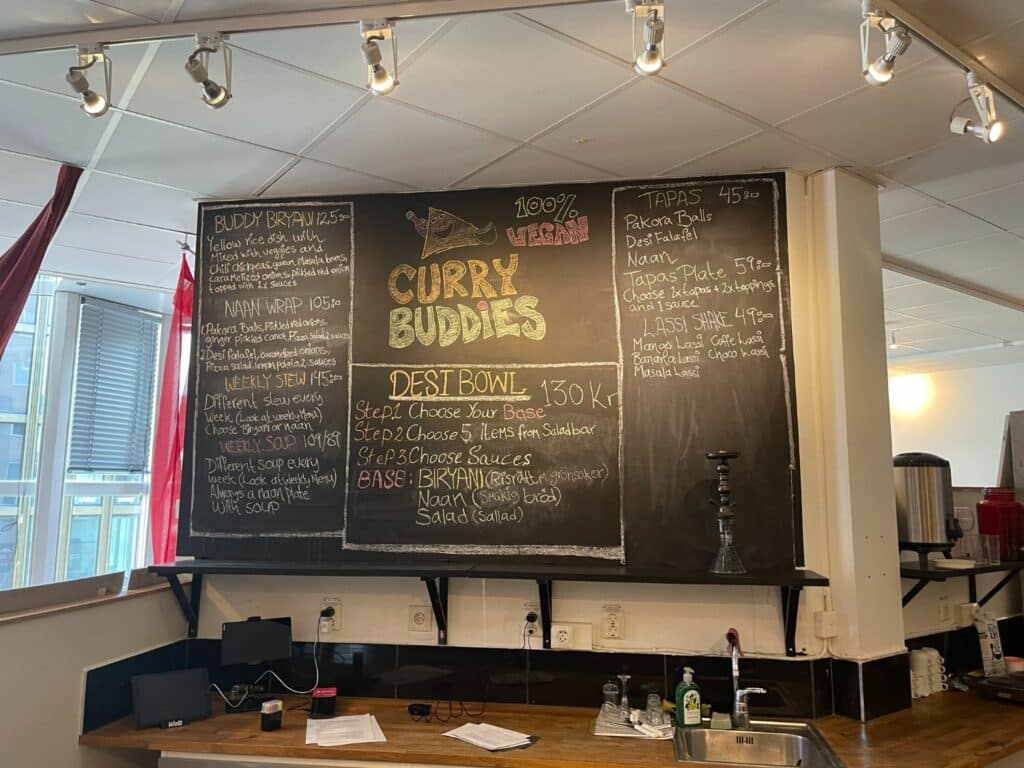 BUDDY BIRYANI 125:-
Yellow rice dish with
Mixed with veggies and
Chili chickpeas, Masala beans,
Caramelized onions, pickled red onion
topped with 2x sauces
NAAN WRAP 105:-
1. Pakora Balls, Pickled red onions,
ginger pickled carrot, Pizza salad 2 sauces
2. Desi falafel, caramelized onions,
Pizza salad, 2 sauces
WEEKLY STEW 145:-
Different stew every
week (Look at weekly Menu)
Choose Biryani or naan
WEEKLY SOUP 109/89
Different soup every
week (Look at weekly Menu)
Always a naan plate
With soup
100%
VEGAN
CURRY
BUDDiES
DESI BOWL 130 Kr
Step.1 Choose Your Base
Step 2 Choose 5 items from Saladbar
Step 3 Choose Sauces
BASE: BIRYANI (Risrätt m grönsaker)
Naan (Smakig bröd)
Salad (Sallad)
TAPAS 45:-
Pakora Balls
Desi Falafel
Naan
Tapas Plate 59:-
Choose 1x tapas + 2x toppings
and 1 sauce
LASSI SHAKE 49:-
Mango Lassi Coffe Lassi
Banana Lassi Choco Lassi
Masala Lassi